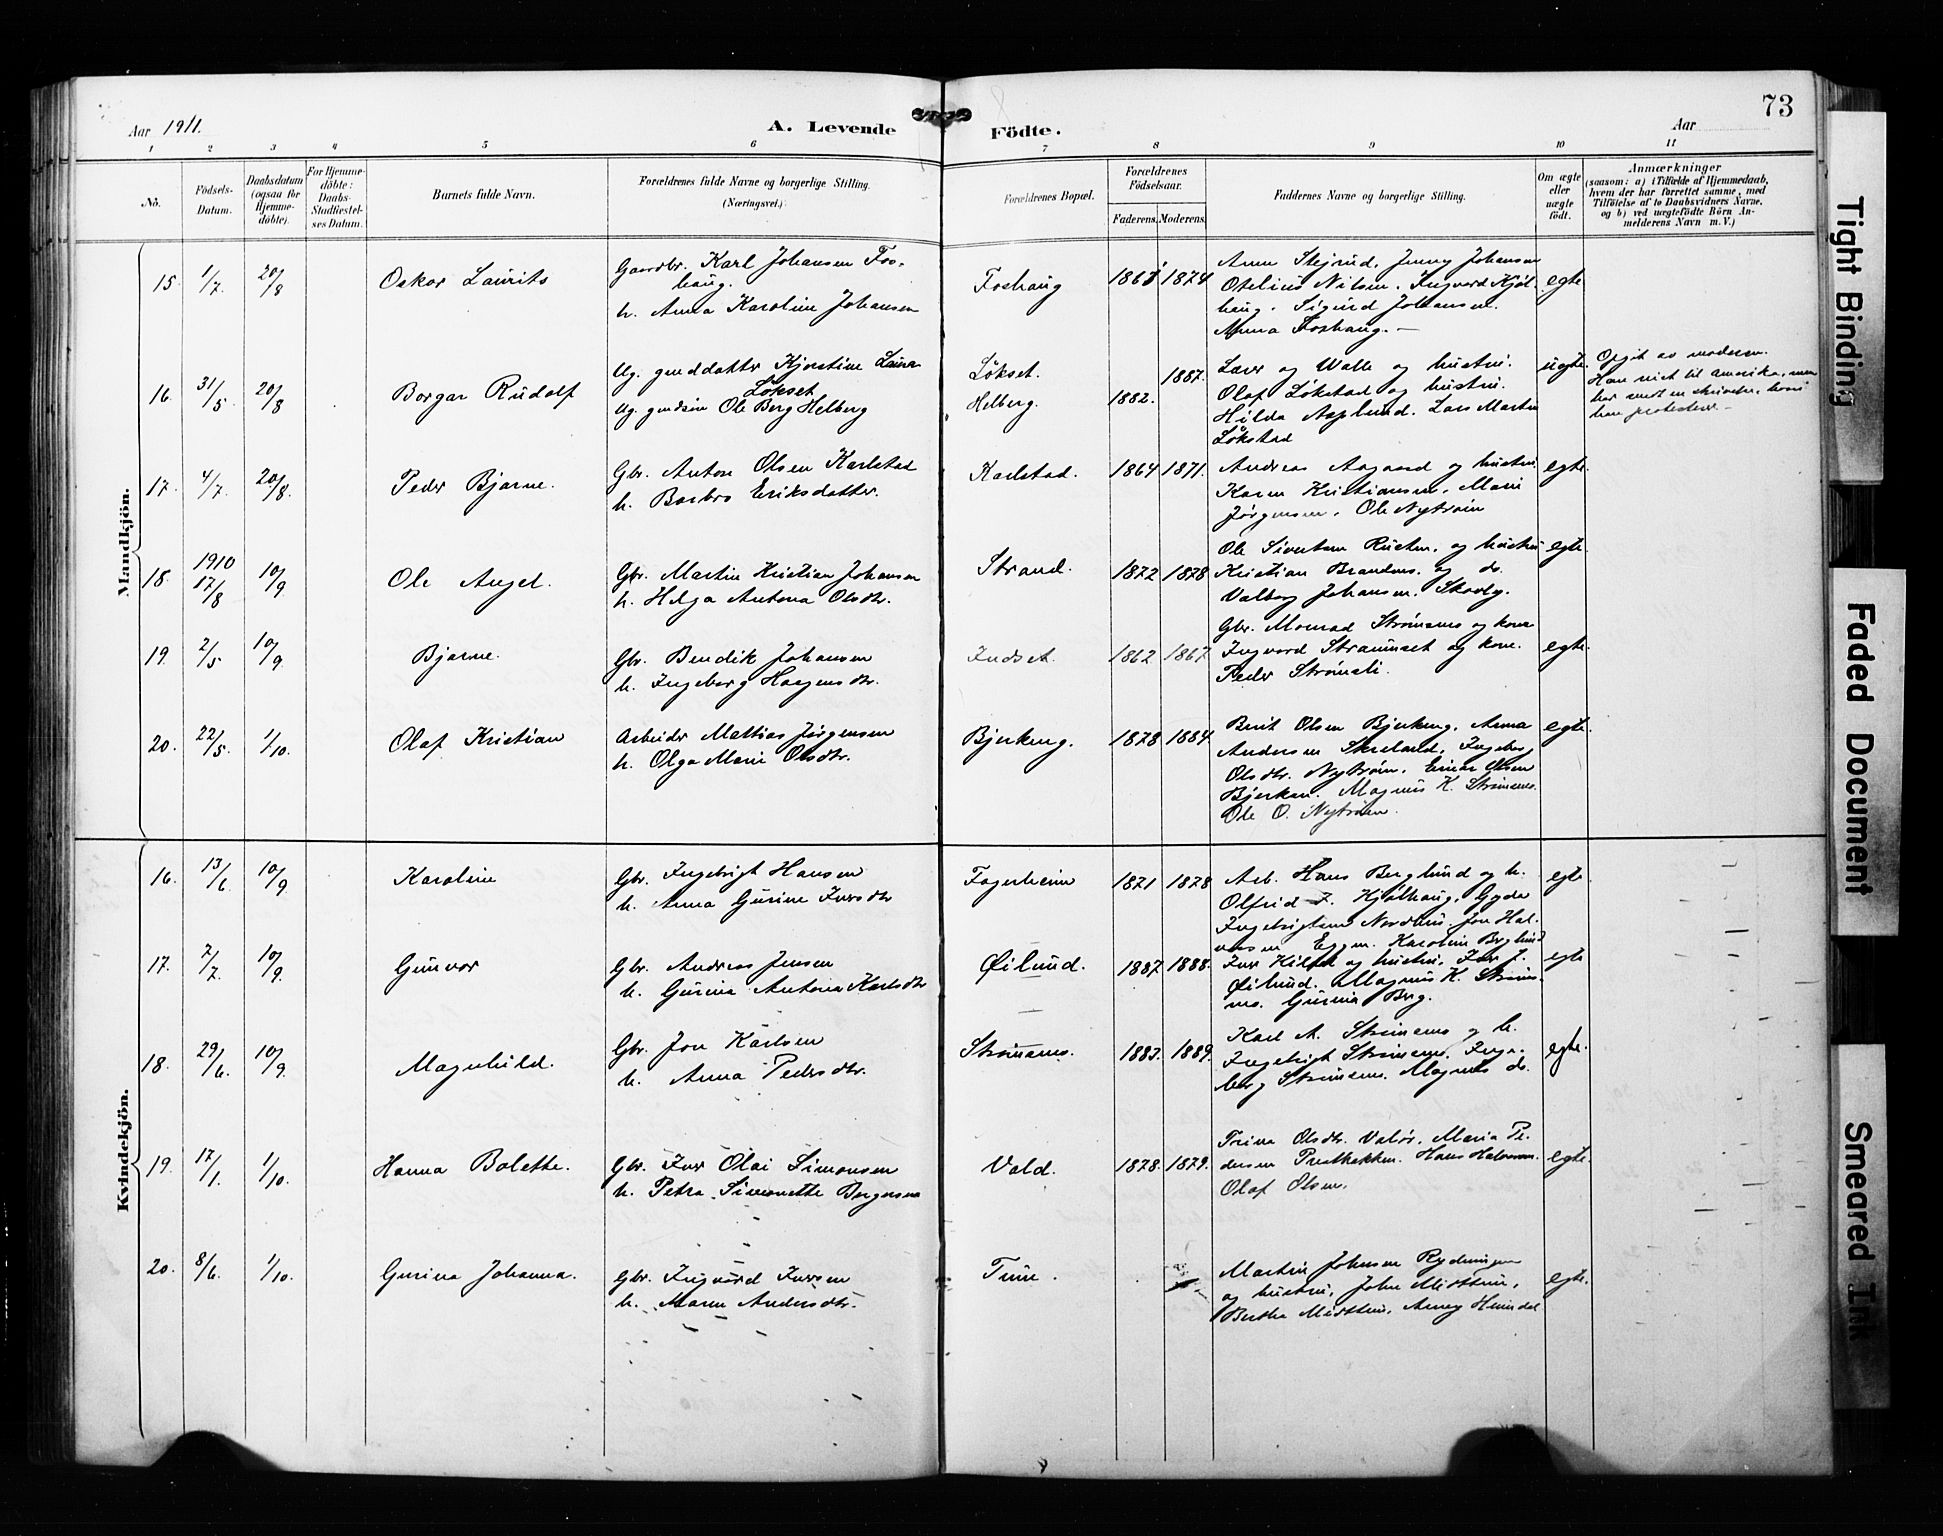 73
Aar 1911.
A. Levende Födte.
Aar
1 2 3 4 5 6 7 8 9 10 11
No.
Födsels-
Datum.
Daabsdatum
(ogsaa for
Hjemme-
döbte).
For Hjemme-
döbte:
Daabs-
Stadfæstel-
ses Datum.
Barnets fulde Navn.
Forældrenes fulde Navne og borgerlige Stilling.
(Næringsvei.)
Forældrenes Bopæl.
Forældrenes
Födselsaar.
Faderens. Moderens.
Faddernes Navne og borgerlige Stilling.
Om ægte
eller
uægte
født.
Anmærkninger
(saasom: a) i Tilfælde af Hjemmedaab,
hvem der har forrettet samme, med
Tilföielse af to Daabsvidners Navne,
og b) ved uægtefödte Börn An-
melderens Navn m. V.)
Mandkjön.
15. 1/7. 20/8 Oskar Laurits
Gaardbr. Karl Johansen Fos-
haug.
h. Anna Karoline Johansen
Foshaug 1874 egte
Jenny Johansen
Otelius Nilsen. Ingvard Kjöl-
haug. Sigurd Johansen.
Foshaug. —
16. 31/5 20/8 Borgar Rudolf
Ug. gmddatter Kjerstine Laura
Løkset
Ug. gmdsøn Ole Berg Helberg
Løkset.
Helberg.
1882. 1887.
Lærer og Walle og hustru.
Olaf Løkstad og hustru.
Hilda Asplund. Lars Martin
Løkstad
uegte.
Opgit av moderen.
Han reist til Amerika, men
har sendt en skrivelse, hvori
han protesterer. —
17. 4/7. 20/8. Peder Bjarne.
Gbr. Anton Olsen Karlstad
h. Barbro Eriksdatter.
Karlstad. 1864 1871.
Andreas Aagaard og hustru
Karen Kristiansen, Marie
Jørgensen. Ole Nytrøen
egte.
18. 1910 17/8 10/9. Ole Angel.
Gbr. Martin Kristian Johansen
h. Helga Antona Olsdtr.
Strand. 1872 1878
Ole Sivertsen Rusten. og hustru
Kristian Brandmo. og do.
Valborg Johansen. Skovly.
egte.
19. 2/5 10/9. Bjarne.
Gbr. Bendik Johansen
h. Ingeborg Haagensdtr.
Indset. 1862 1867
Gbr. Monrad Strømsmo og kone
Ingvard Straumset og kone.
Peder Strømsli.
egte.
20. 22/5. 1/10. Olaf Kristian
Arbeider Mattias Jørgensen
h. Olga Marie Olsdtr.
Bjerkeng. 1878 1884.
Berit Olsen Bjerkeng, Anna
Andersen Ingeborg
Olsdtr. Nytrøen. Einar Olsen
Bjerkan. Magnus K. Strømsmo.
Ole O. Nytrøen.
egte.
Kvindekjön.
16. 13/6. 10/9 Karoline
Gbr. Ingebrigt Hansen
h. Anna Gurine Iversdtr
Fagerheim 1871 1878
Arb. Hans Berglund og h.
Olfrid I. Hjølhaug. Gyda
Ingebrigtsen Nordmo. Jon Hal-
vorsen Eggen. Karoline Berglund
egte.
17. 7/7. 10/9. Gunvor
Gbr. Andreas Jensen
h. Gurina Antona Karlsdtr
Øilund. 1887. 1888.
og hustru, Iver J.
Øilund. Magnus K. Strøms-
mo. Gurine Berg.
egte
18. 29/6. 10/9. Magnhild.
Gbr. Jon Karlsen
h. Anna Pedersdtr.
Strømsmo. 1883. 1889.
Karl A. Strømsmo og h.
Ingebrigt Strømsmo. Inge-
borg Strømsmo. Magnus do.
egte.
19. 17/1. 1/10. Hanna Bolette.
Gbr. Iver Olai Simonsen
h. Petra Simonette Borgersen
Vold. 1878. 1879.
Trina Olsdtr. Valør. Maria Pe-
dersen Prestbakken. Hans Halvorsen.
Olaf Olsen.
egte.
20. 8/6. 1/10. Gurina Johanna.
Gbr. Ingvard Iversen
h. Maren Andersdtr.
Martin Johnsen
og hustru, John Midttun,
Bertha Midttun,
egte.
Tight Binding
Faded Document
Smeared Ink